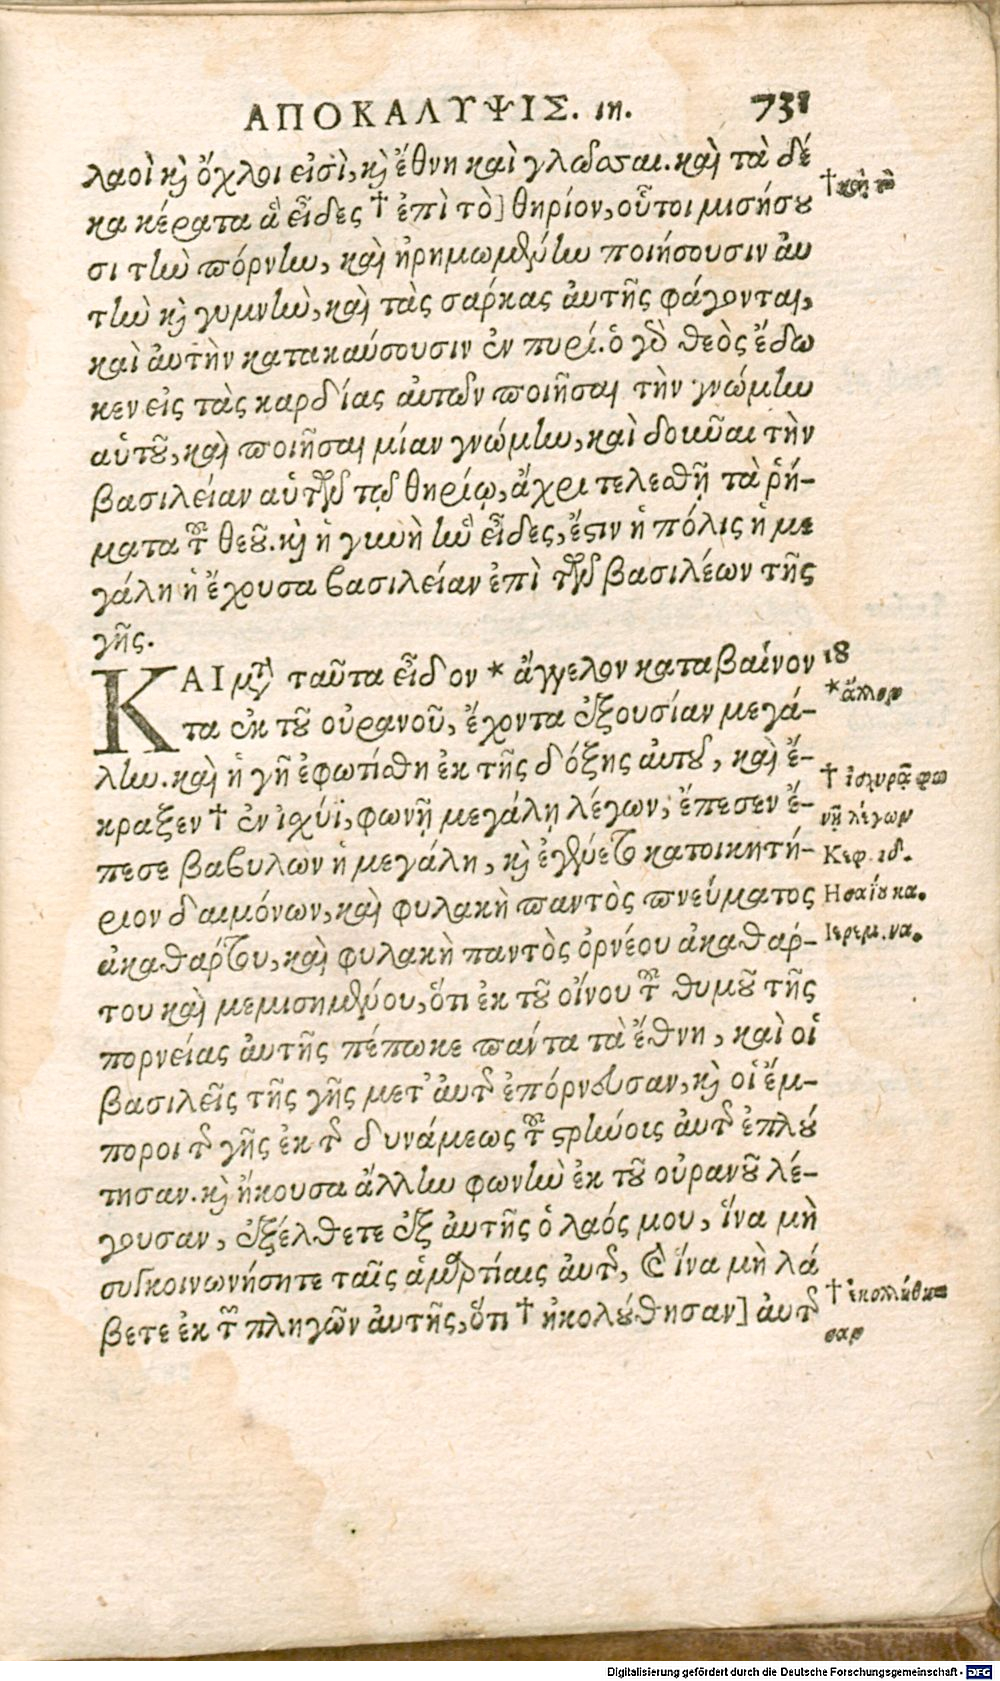 ΑΠΟΚΑΛΥΨΙΣ. ιη. 731
λαοὶ κὶ ὄχλοι εἰσὶ, κὶ ἔθνη καὶ γλῶσσαι. καὶ τὰ δέ
κα κέρατα ἃ εἶδες † ἐπὶ τὸ] θηρίον, οὗτοι μισήσου
σι τὴν πόρνην, καὶ ἠρημωμένην ποιήσουσιν αὐ
τὴν κὶ γυμνὴν, καὶ τὰς σάρκας αὐτῆς φάγονται,
καὶ αὐτὴν κατακαύσουσιν ἐν πυρί. ὁ γὸ θεὸς ἔδω
κεν εἰς τὰς καρδίας αὐτῶν ποιῆσαι τὴν γνώμην
αὑτοῦ, καὶ ποιῆσαι μίαν γνώμην, καὶ δοῦναι τὴν
βασιλείαν αὑτῶν τῷ θηρίῳ, ἄχρι τελεσθῇ τὰ ῥή-
ματα τοῦ θεοῦ. κὶ ἡ γυνὴ ἣν εἶδες, ἔστιν ἡ πόλις ἡ με
γάλη ἡ ἔχουσα βασιλείαν ἐπὶ τῶν βασιλέων τῆς
γῆς.
ΚΑΙ μετὰ ταῦτα εἶδον * ἄγγελον καταβαίνον
τα ἐκ τοῦ οὐρανοῦ, ἔχοντα ἐξουσίαν μεγά-
λην. καὶ ἡ γῆ ἐφωτίσθη ἐκ τῆς δόξης αὐτοῦ, καὶ ἔ-
κραξεν † ἐν ἰσχύϊ, φωνῇ μεγάλῃ λέγων, ἔπεσεν ἔ-
πεσε βαβυλὼν ἡ μεγάλη, κὶ ἐγένετο κατοικητή-
ριον δαιμόνων, καὶ φυλακὴ παντὸς πνεύματος
ἀκαθάρτου, καὶ φυλακὴ παντὸς ὀρνέου ἀκαθάρ-
του καὶ μεμισημένου, ὅτι ἐκ τοῦ οἴνου τοῦ θυμοῦ τῆς
πορνείας αὐτῆς πέπωκε πάντα τὰ ἔθνη, καὶ οἱ
βασιλεῖς τῆς γῆς μετ' αὐτῆς ἐπόρνευσαν, κὶ οἱ ἔμ-
ποροι τῆς γῆς ἐκ τῆς δυνάμεως τοῦ στρήνους αὐτῆς ἐπλού
τησαν. κὶ ἤκουσα ἄλλην φωνὴν ἐκ τοῦ οὐρανοῦ λέ-
γουσαν, ἐξέλθετε ἐξ αὐτῆς ὁ λαός μου, ἵνα μὴ
συγκοινωνήσητε ταῖς ἁμαρτίαις αὐτῆς, καὶ ἵνα μὴ λά
βετε ἐκ τῶν πληγῶν αὐτῆς, ὅτι † ἠκολούθησαν] αὐτῆς
† καὶ τὸ
18
* ἄλλον
† ἰσχυρᾷ φω
νῇ λέγων
Κεφ. ιδ.
Ησαΐου κα.
Ιερεμ. να.
† ἐκολλήθη
σαν
Digitalisierung gefördert durch die Deutsche Forschungsgemeinschaft - DFG